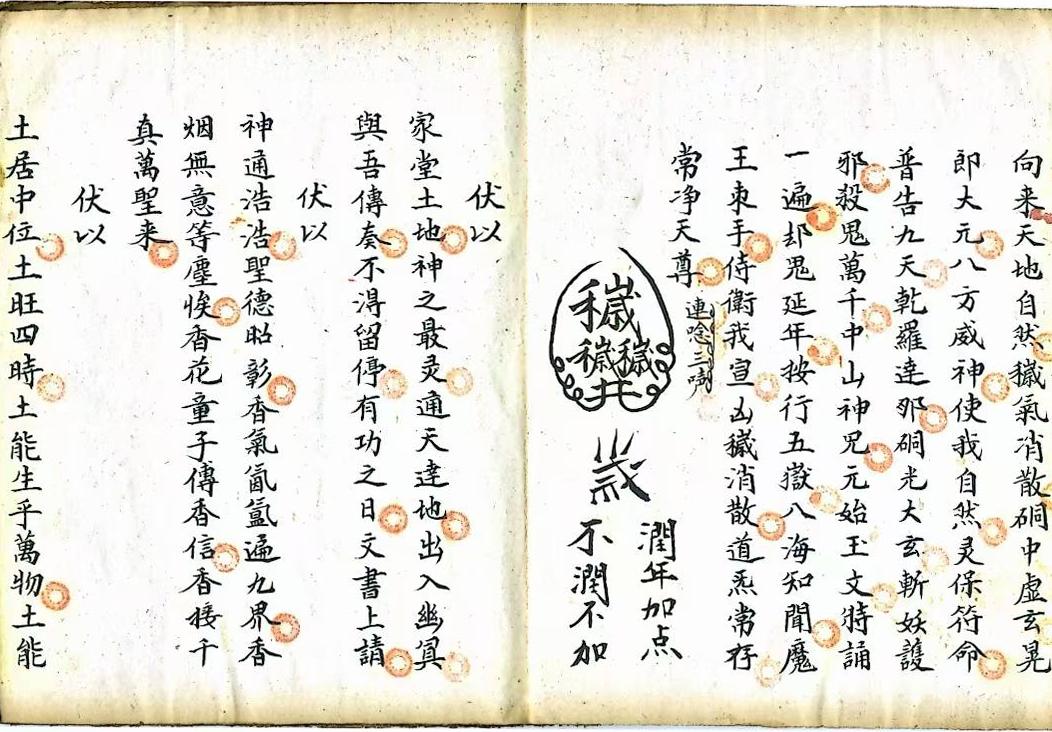 向来天地自然穢氣消散硐中虚玄晃
郎大元八方威神使我自然灵保符命
普告九天乾羅達那硐光大玄斬妖護
邪殺鬼萬千中山神咒元始玉文持誦
一遍却鬼延年按行五嶽八海知聞魔
王束手侍衛我宣凶穢消散道炁常存
常净天尊
連唸三
穢
穢穢
井
潤年加点
不潤不加
伏以
家堂土地神之最灵通天達地出入幽冥
與吾傳奏不淂留停有功之日文書上請
伏以
神通浩浩聖德昭彰香氣氤氳遍九界香
烟無意等塵埃香花童子傳香信香接千
真萬聖来
伏以
土居中位土旺四時土能生乎萬物土能